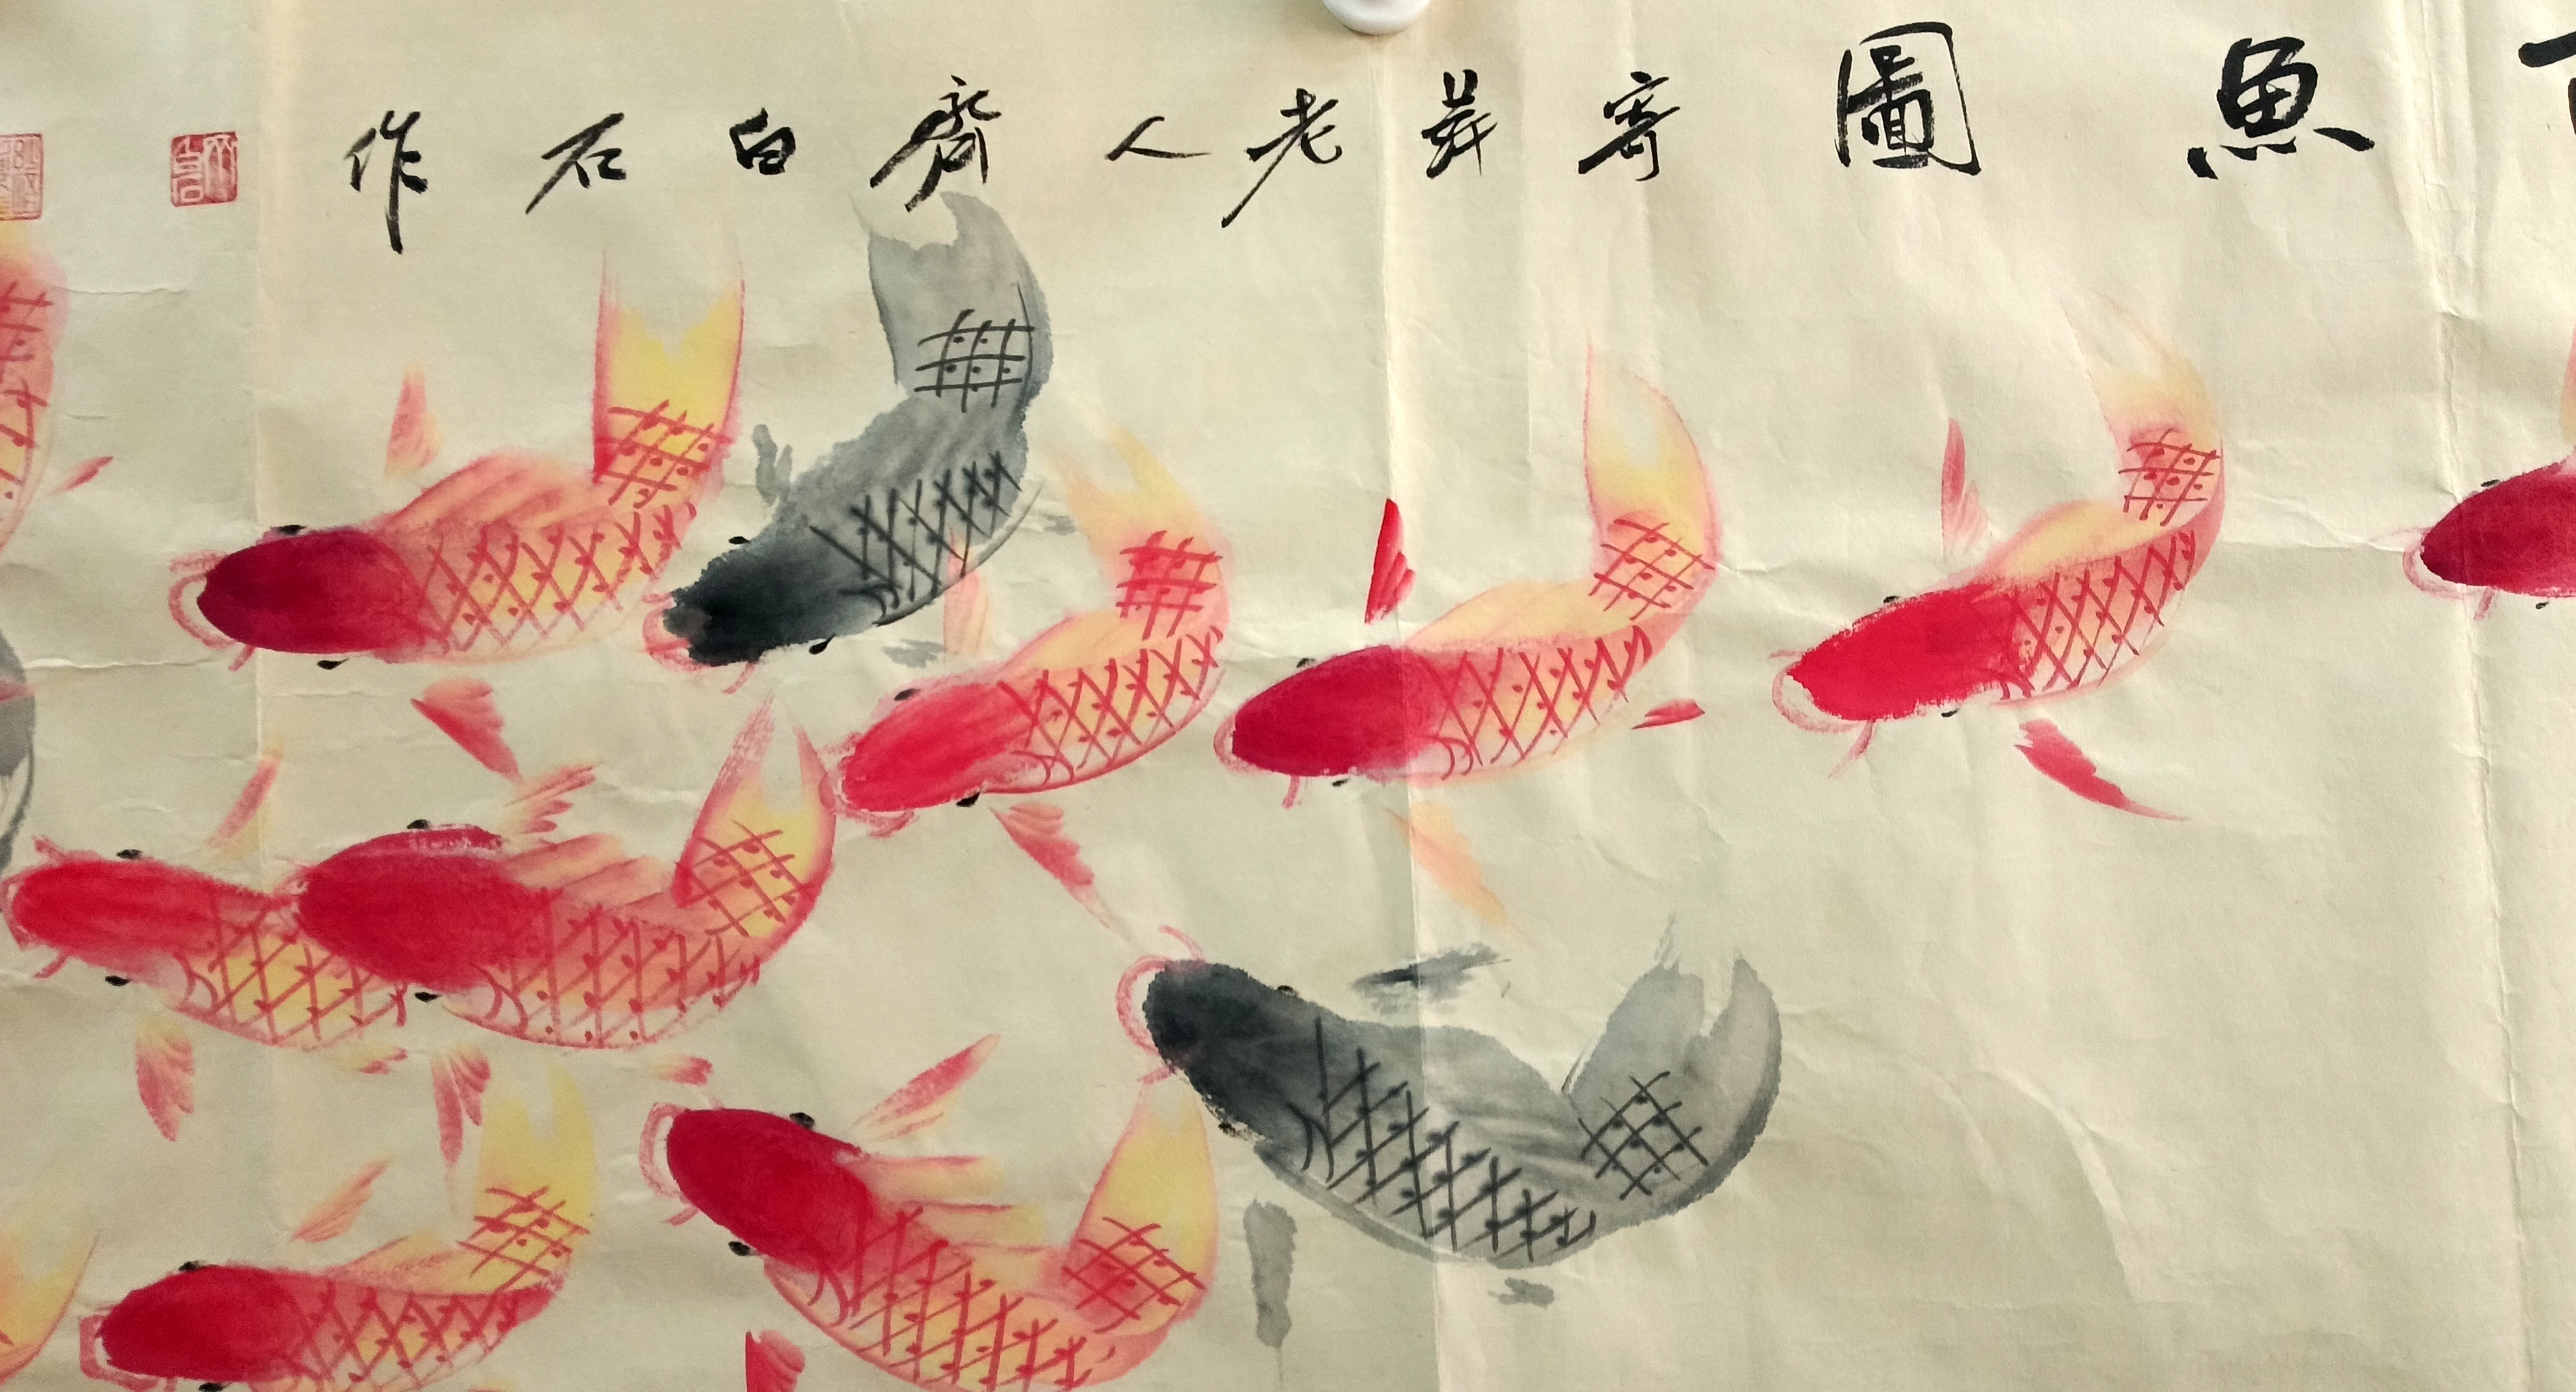 魚圖寄萍老人齊白石作